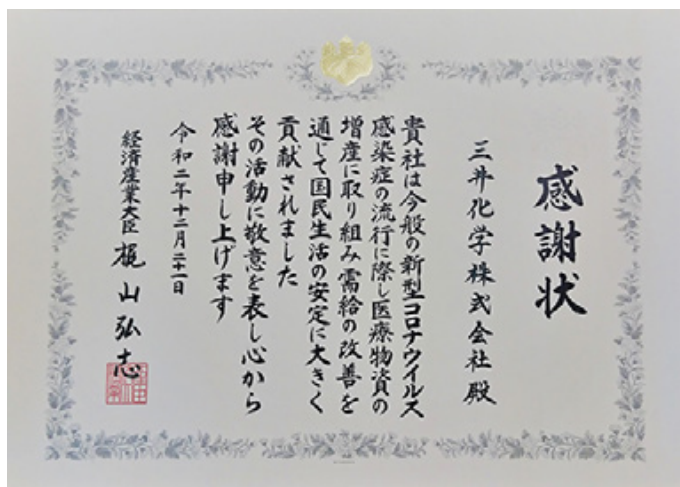 感謝状
三井化学株式会社殿
貴社は今般の新型コロナウイルス
感染症の流行に際し医療物資の
増産に取り組み需給の改善を
通じて国民生活の安定に大きく
貢献されました
その活動に敬意を表し心から
感謝申し上げます
令和二年十二月二十一日
経済産業大臣 梶山弘志